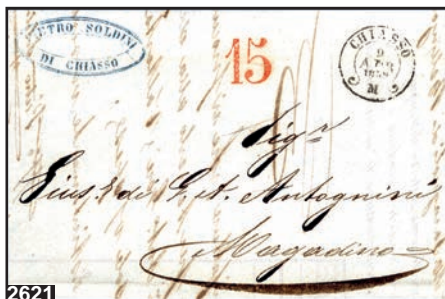 PIETRO SOLDINI
DI CHIASSO
15
CHIASSO
9
APR
M
Sigr
Gius. & di G. A. Antognini
Magadino
2621